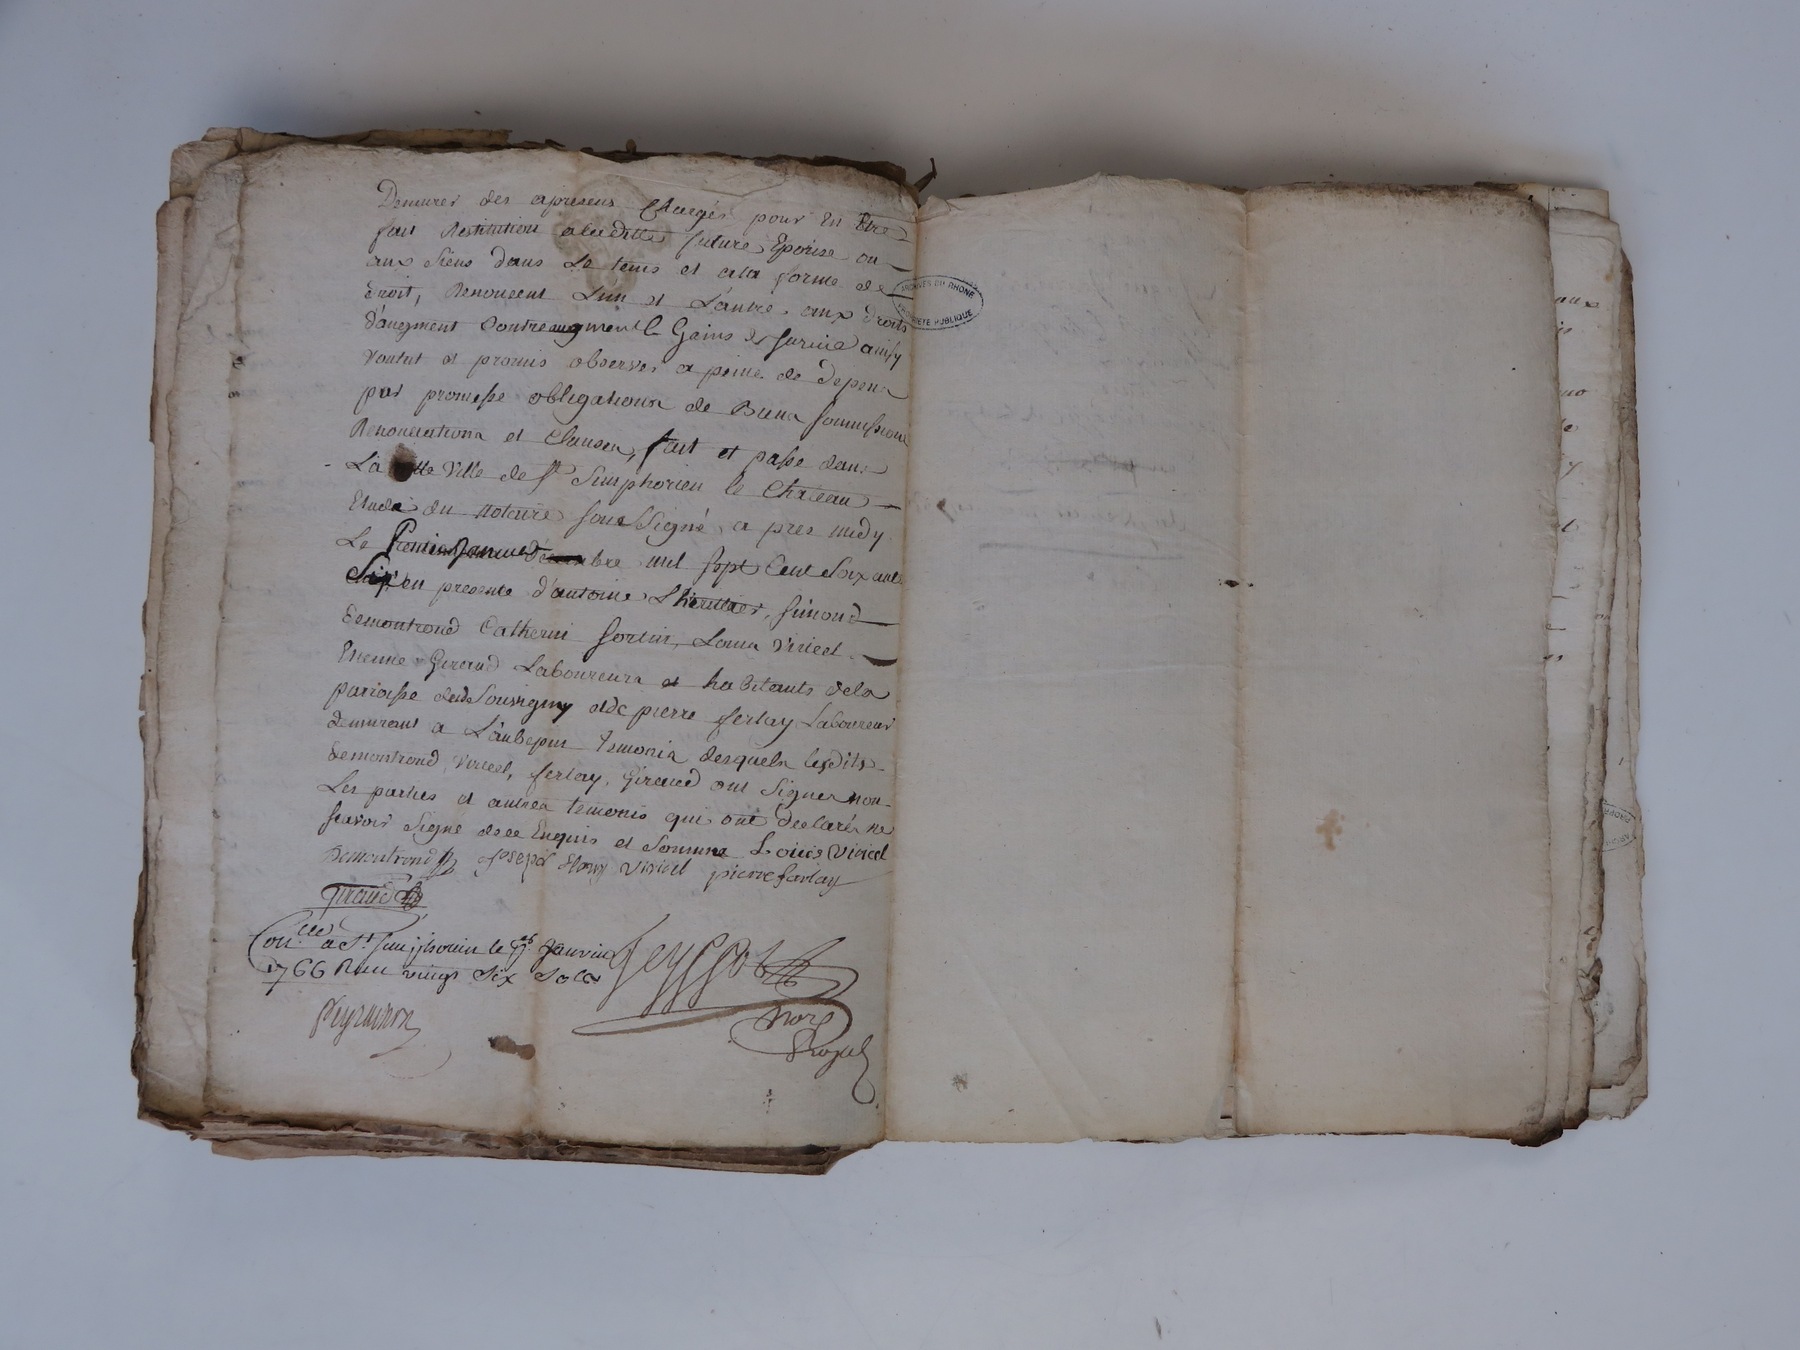 Demurer des apresens Chargés pour En Etre
fait Restitution a laditte future Epouse ou
aux Siens dans Le tems et a la forme de
droit, Renoncent L'un et L'autre aux droits
d'augment Contreaugment & Gains de survie ainsy
voulut et promis observer a peine de depens
par promesse obligations de Biens soumissions
Renonciations et Clauses, fait et passé dans
La ditte Ville de St Simphorien le Chateau
Etude du notaire sous Signé a pres midy
Le Premier Janvier mil sept Cent Soixante
Six en presence d'antoine Simond
Demontrond Catherin Louis Viricel
Etienne Giraud Laboureurs et habitants dela
paroisse de Souvigny et de pierre ferlay Laboureur
demurant a L'aubepin temoins desquels lesdits
demontrond, Viricel, ferlay, Giraud ont Signer non
Les parties et autres temoins qui ont declarés ne
scavoir Signé de ce Enquis et Sommes Louis Viricel
Demontrond Joseph Viricel pierre ferlay
Giraud
Con.lle a St Simphorien le Janvier
1766 Reçu vingt Six Sols
Not
Royal
ARCHIVES DU RHONE
PROPRIÉTÉ PUBLIQUE